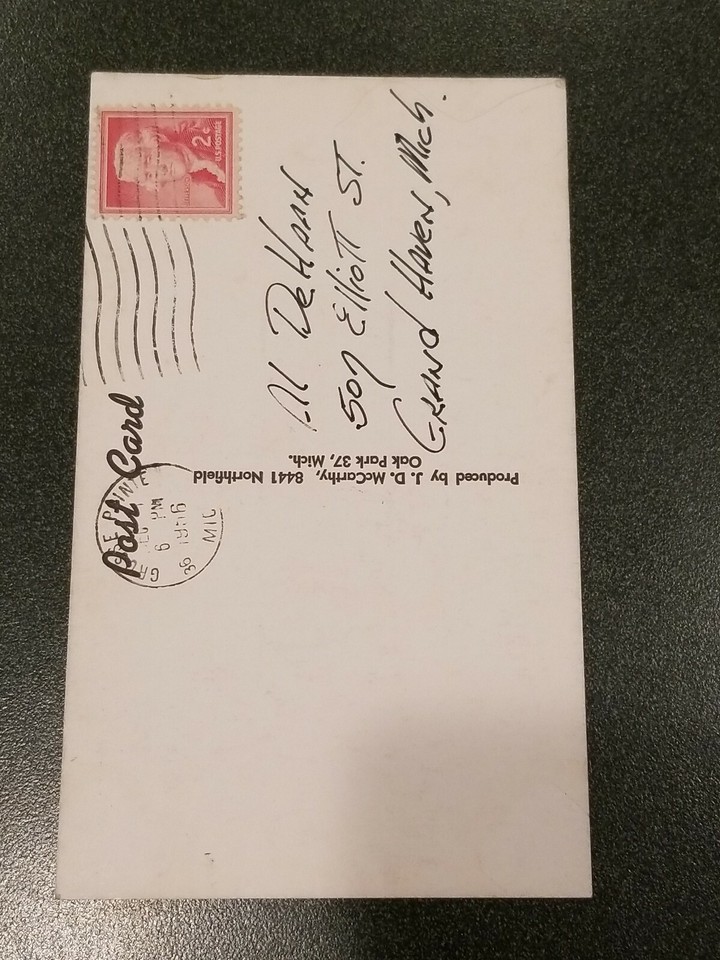 Post Card
2¢
U.S. POSTAGE
PM
6
1956
36 MIC
Al DeHaan
507 Elliott St.
Grand Haven, Mich.
Produced by J. D. McCarthy, 8441 Northfield
Oak Park 37, Mich.